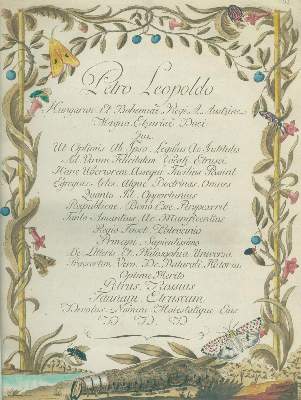 Petro Leopoldo
Hungariae Et Bohemiae Regi A. Austriae
Magno Etruriae Duci
Qui
Ut Optimis Ab Ipso Legibus Ac Institutis
Ad Veram Felicitatem Etrusci
Hanc Uberiorem Assequi Facilius
Egregias Artes Atque Doctrinas Omnes
Quanto Id Opportunius
Reipublicae Bono Esse Perspexerit
Tanto Amantius Ac Munificentius
Regio Fovet Patrocinio
Principi Sapientissimo
De Litteris Et Philosophia Universa
Praesertim Vero De Naturali Historia
Optime Merito
Petrus Rossius
Faunam Etruscam
Devotus Numini Maiestatique Eius
D. D. D.